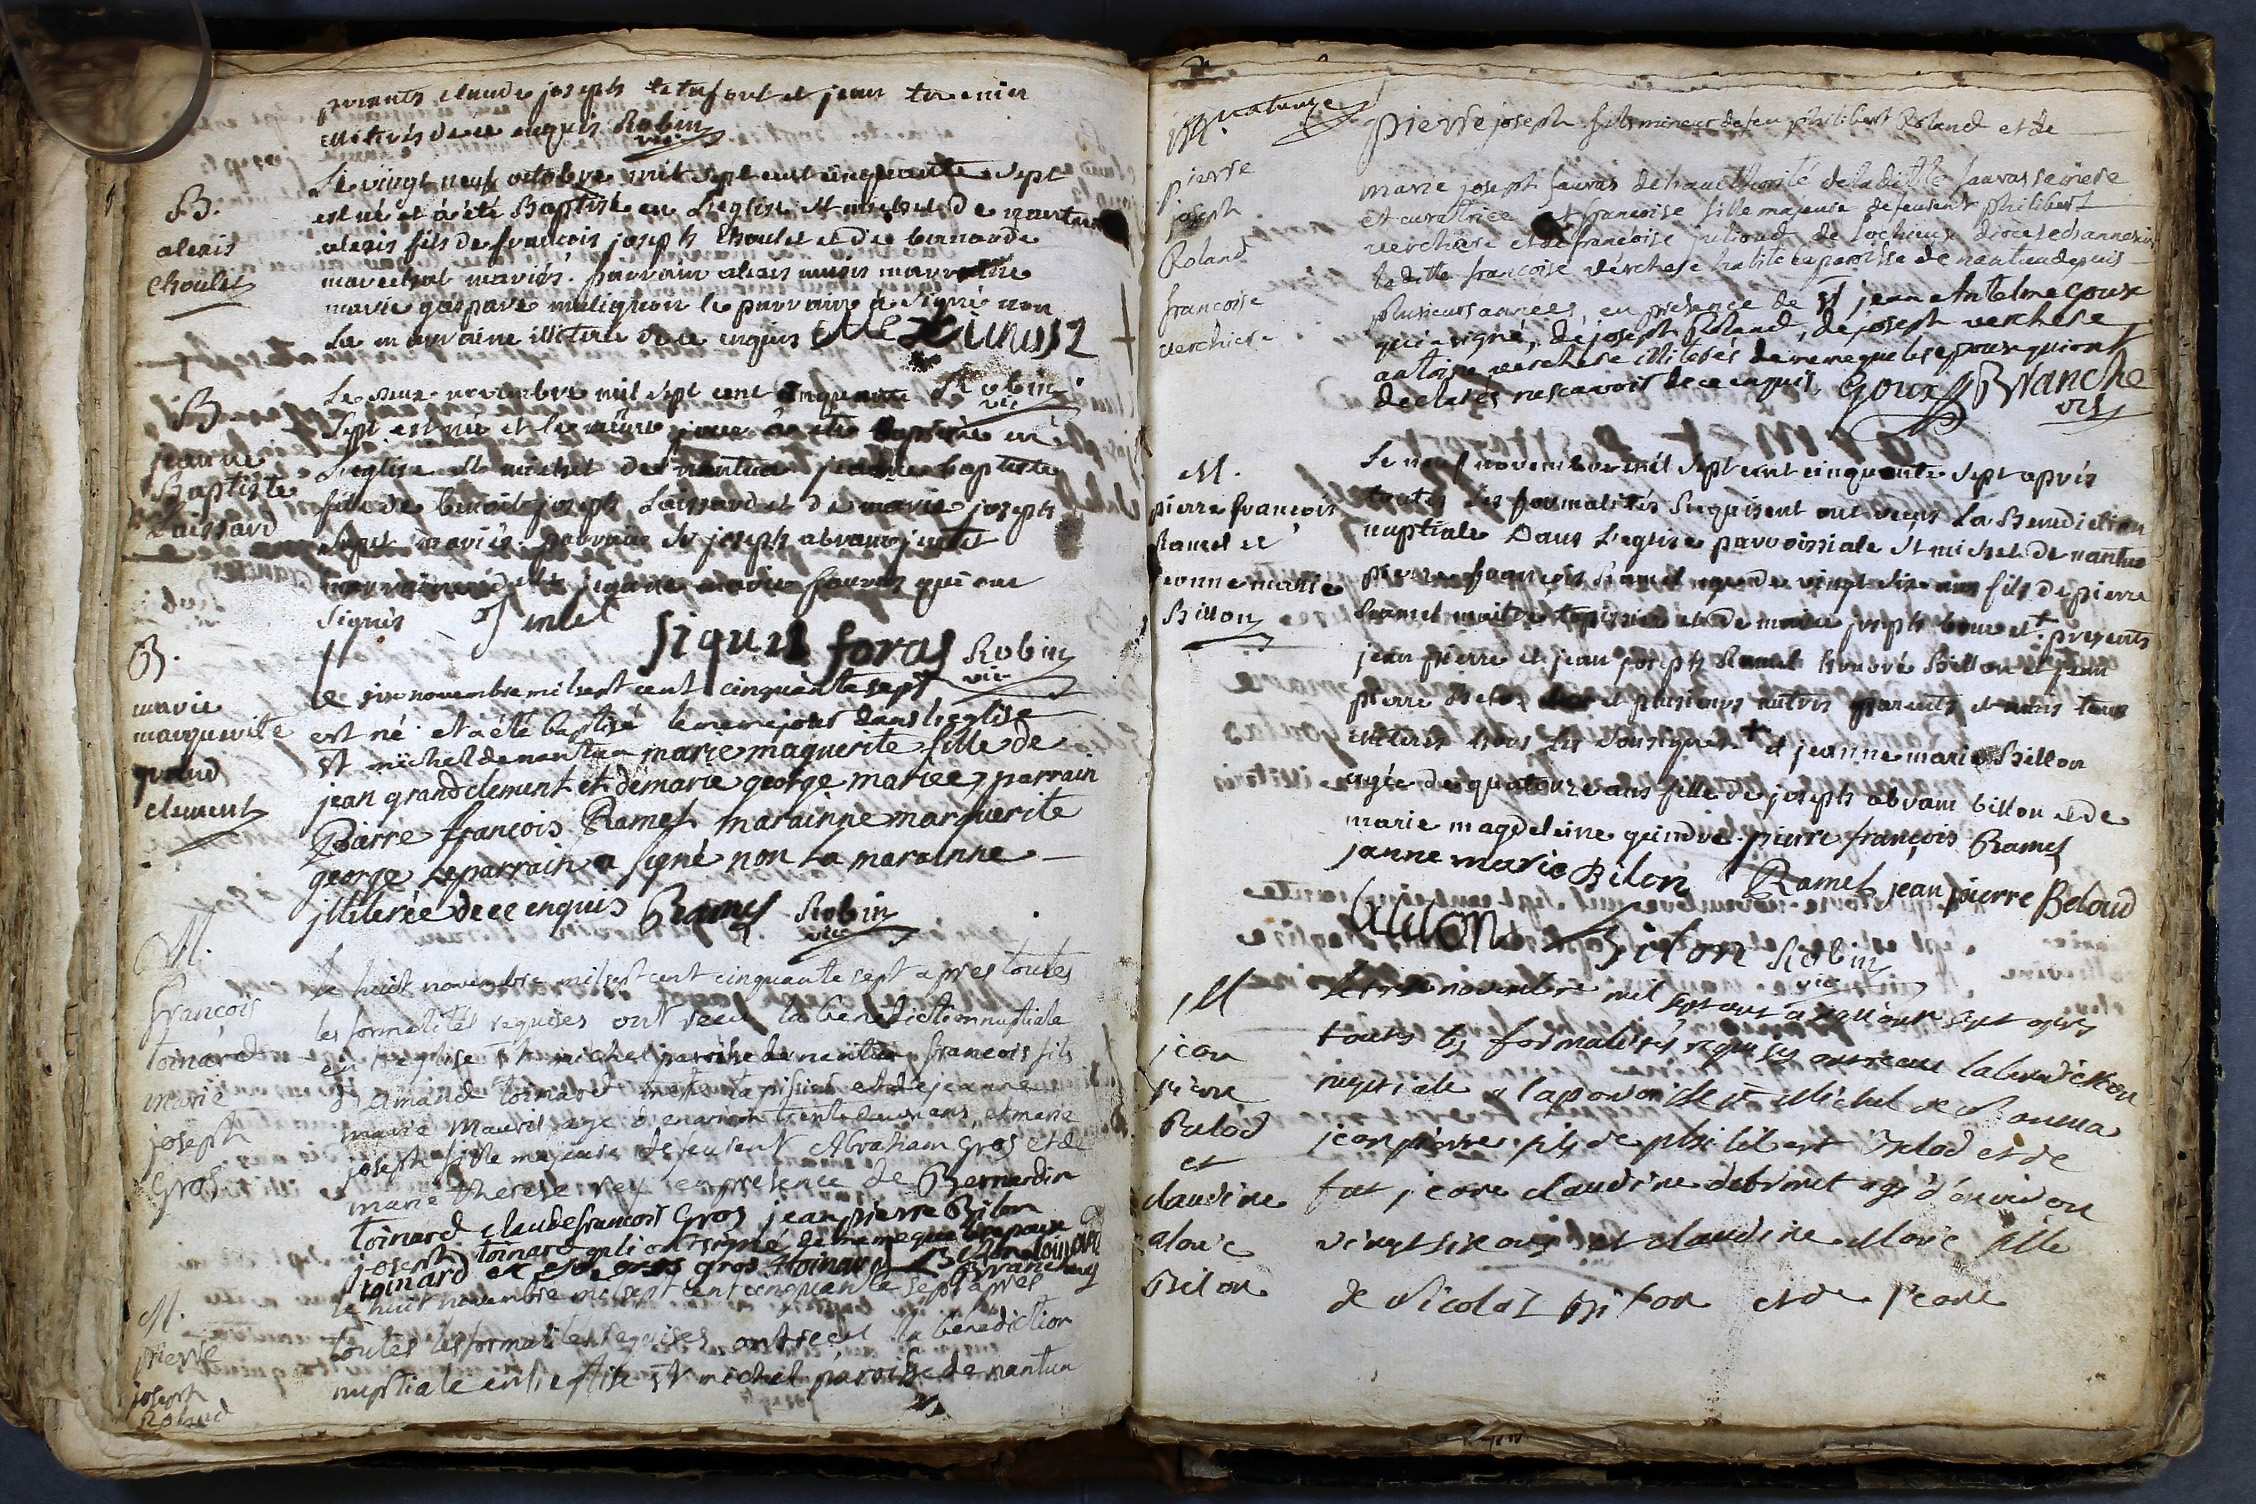 parents claude joseph et jean
illiterés de ce enquis Robin
vic
B.
alexis
choulet
Le vingt neuf octobre mil sept cent cinquante sept
est né et à été Baptisé en L'eglise st michel de nantua
alexis fils de francois joseph Choulet et de bernarde
marechal mariés. parrain alexis marraine
marie gaspare malignon le parrain à signé non
La marraine illiteré de ce enquis
Robin
vic
B
jeanne
Baptiste
Laissard
Le novembre mil sept cent cinquante
Sept est née et le même jour à été baptisée en
L'eglise st michel de nantua jeanne baptiste
fille de benoit joseph Laissard et de marie joseph
mariés. parrain Sr joseph abram juilet
marraine marie qui ont
Signés
Juilet
Robin
vic
B.
marie
marguerite
grand
clement
le six novembre mil sept cent cinquante sept
est né et a été baptisé le meme jour dans l'eglise
st michel de nantua marie maguerite fille de
jean grand clement et de marie george mariee, parrain
Pierre francois Ramel marainne marguerite
george Le parrain a signé non La marainne
illiterée de ce enquis Ramel Robin
vic
M.
françois
toinard
marie
joseph
Gros
le huit novembre mil sept cent cinquante sept apres toutes
les formalités requises ont recu la benediction nuptiale
en l'eglise st michel paroisse de nantua francois fils
d'amand toinard metre tapissier et de jeanne
marie mauris agé d'environ trente ans et marie
joseph fille majeure de feu sr Abraham Gros et de
marie therese rey en presence de Bernardin
toinard claude francois Gros jean pierre Bilon
joseph toinard qui ont signé de meme que l'epoux
toinard gros toinard Bilon toinard
Branche
M.
pierre
joseph
Roland
le huit novembre mil sept cent cinquante sept apres
toutes les formalités requises ont reçu la benediction
nuptiale en l'eglise st michel paroisse de nantua
quatorze
M.
pierre
joseph
Roland
francoise
verchere
pierre joseph fils mineur de feu philibert Roland et de
marie joseph sauvas de l'authorité de la ditte sauvas sa mere
et curatrice et francoise fille majeure de feu sr philibert
verchere et de francoise juliond de diocese d'annessi
la ditte francoise verchere habite en paroisse de nantua depuis
plusieurs années, en presence de sr jean Antelme Goux
qui a signé, de joseph Roland, de joseph verchere
antoine verchere illiterés de meme que les epoux qui ont
declarés ne scavoir de ce enquis, Goux Branche
vic
M.
pierre françois
Ramel et
jeanne marie
Billon
Le neuf novembre mil sept cent cinquante sept après
toutes les formalités requises ont reçus La Benediction
nuptiale Dans l'eglise parroissiale st michel de nantua
pierre françois Ramel agé de vingt six ans fils de pierre
Ramel maitre tapissier et de marie joseph et + presents
jean pierre et jean joseph Ramel honoré Billon et jean
pierre Belod et plusieurs autres parents et amis tous
illiterés hors les sousignés + et jeanne marie Billon
agée de quatorze ans fille de joseph abram billon et de
marie magdeleine geindre. pierre françois Ramel
janne marie Bilon Ramel jean pierre Beloud
Bilon Robin
vic
M
jean
pierre
Balod
et
claudine
marie
Bilon
Le novembre mil sept cent cinquante sept apres
toutes les formalités requises ont recu la benediction
nuptiale a la paroisse st Michel de Nantua
jean pierre fils de philibert Balod et de
feu jeane claudine debrinet agé d'environ
vingt six ans et claudine Marie fille
de Nicolas Bilon et de jeane